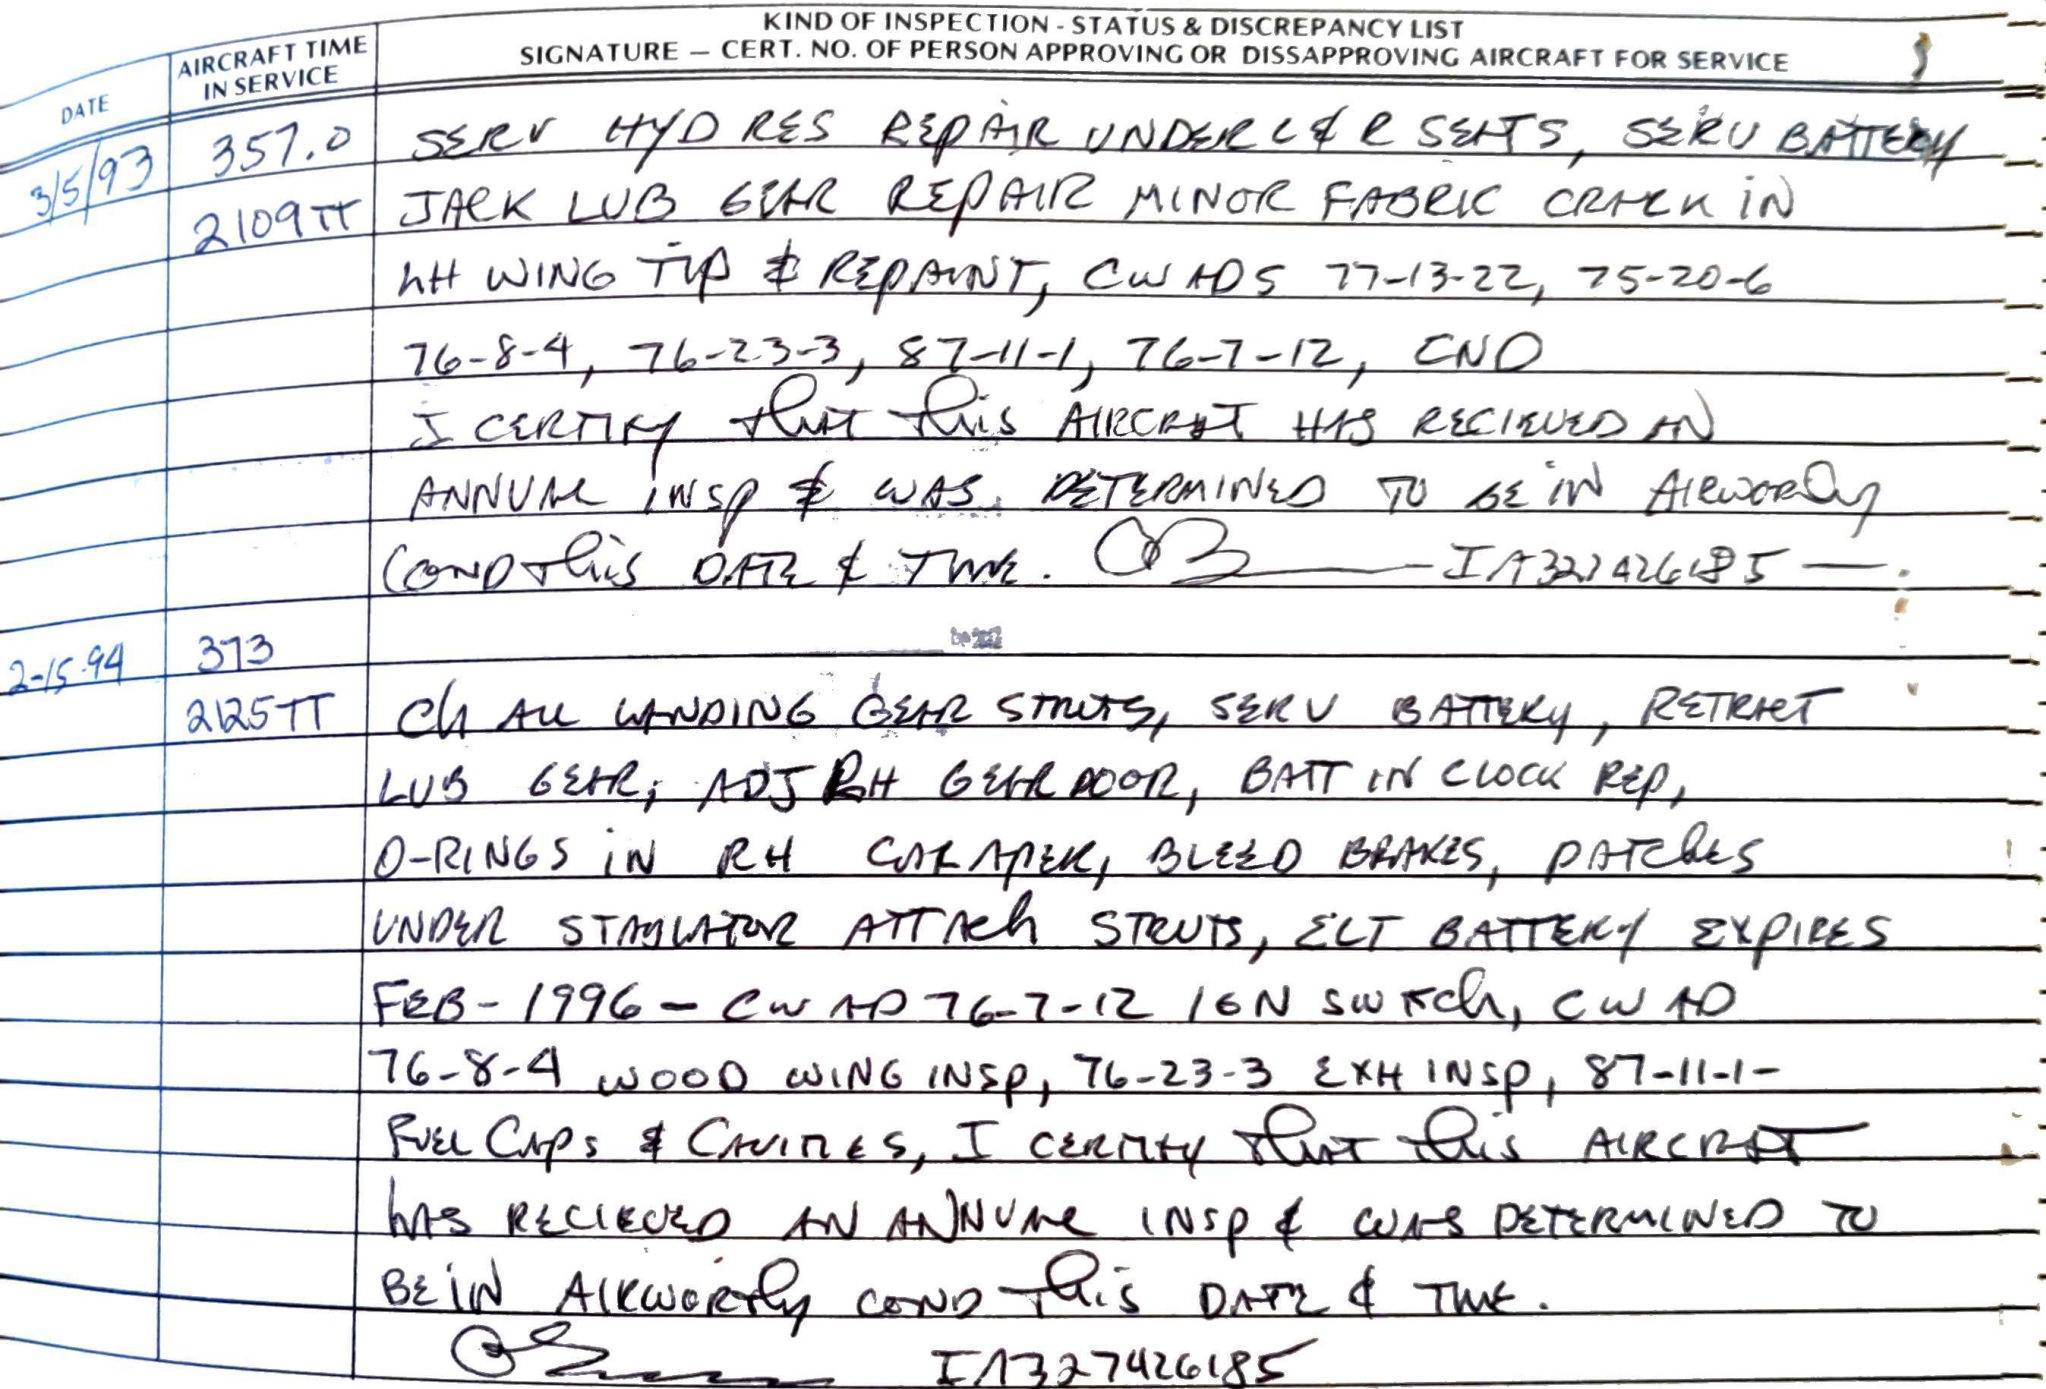 KIND OF INSPECTION - STATUS & DISCREPANCY LIST
SIGNATURE — CERT. NO. OF PERSON APPROVING OR DISSAPPROVING AIRCRAFT FOR SERVICE
DATE
AIRCRAFT TIME
IN SERVICE
3/5/93 357.0 SERV HYD RES REPAIR UNDER L & R SEATS, SERV BATTERY
2109TT JACK LUB GEAR REPAIR MINOR FABRIC CRACK IN
LH WING TIP & REPAINT, CW ADS 77-13-22, 75-20-6
76-8-4, 76-23-3, 87-11-1, 76-7-12, CND
I CERTIFY that this AIRCRAFT HAS RECIEVED AN
ANNUAL INSP & WAS DETERMINED TO BE IN AIRWORTHY
COND this DATE & TIME. IA327426185
2-15-94 373
2125TT Ch ALL LANDING GEAR STRUTS, SERV BATTERY, RETRACT
LUB GEAR, ADJ RH GEAR DOOR, BATT IN CLOCK REP,
O-RINGS IN RH CALAPER, BLEED BRAKES, PATCHES
UNDER STABLATOR ATTACH STRUTS, ELT BATTERY EXPIRES
FEB-1996 - CW AD 76-7-12 IGN SWITCH, CW AD
76-8-4 WOOD WING INSP, 76-23-3 EXH INSP, 87-11-1-
FUEL CAPS & CAVITIES, I CERTIFY that this AIRCRAFT
HAS RECIEVED AN ANNUAL INSP & WAS DETERMINED TO
BE IN AIRWORTHY COND this DATE & TIME.
IA327426185